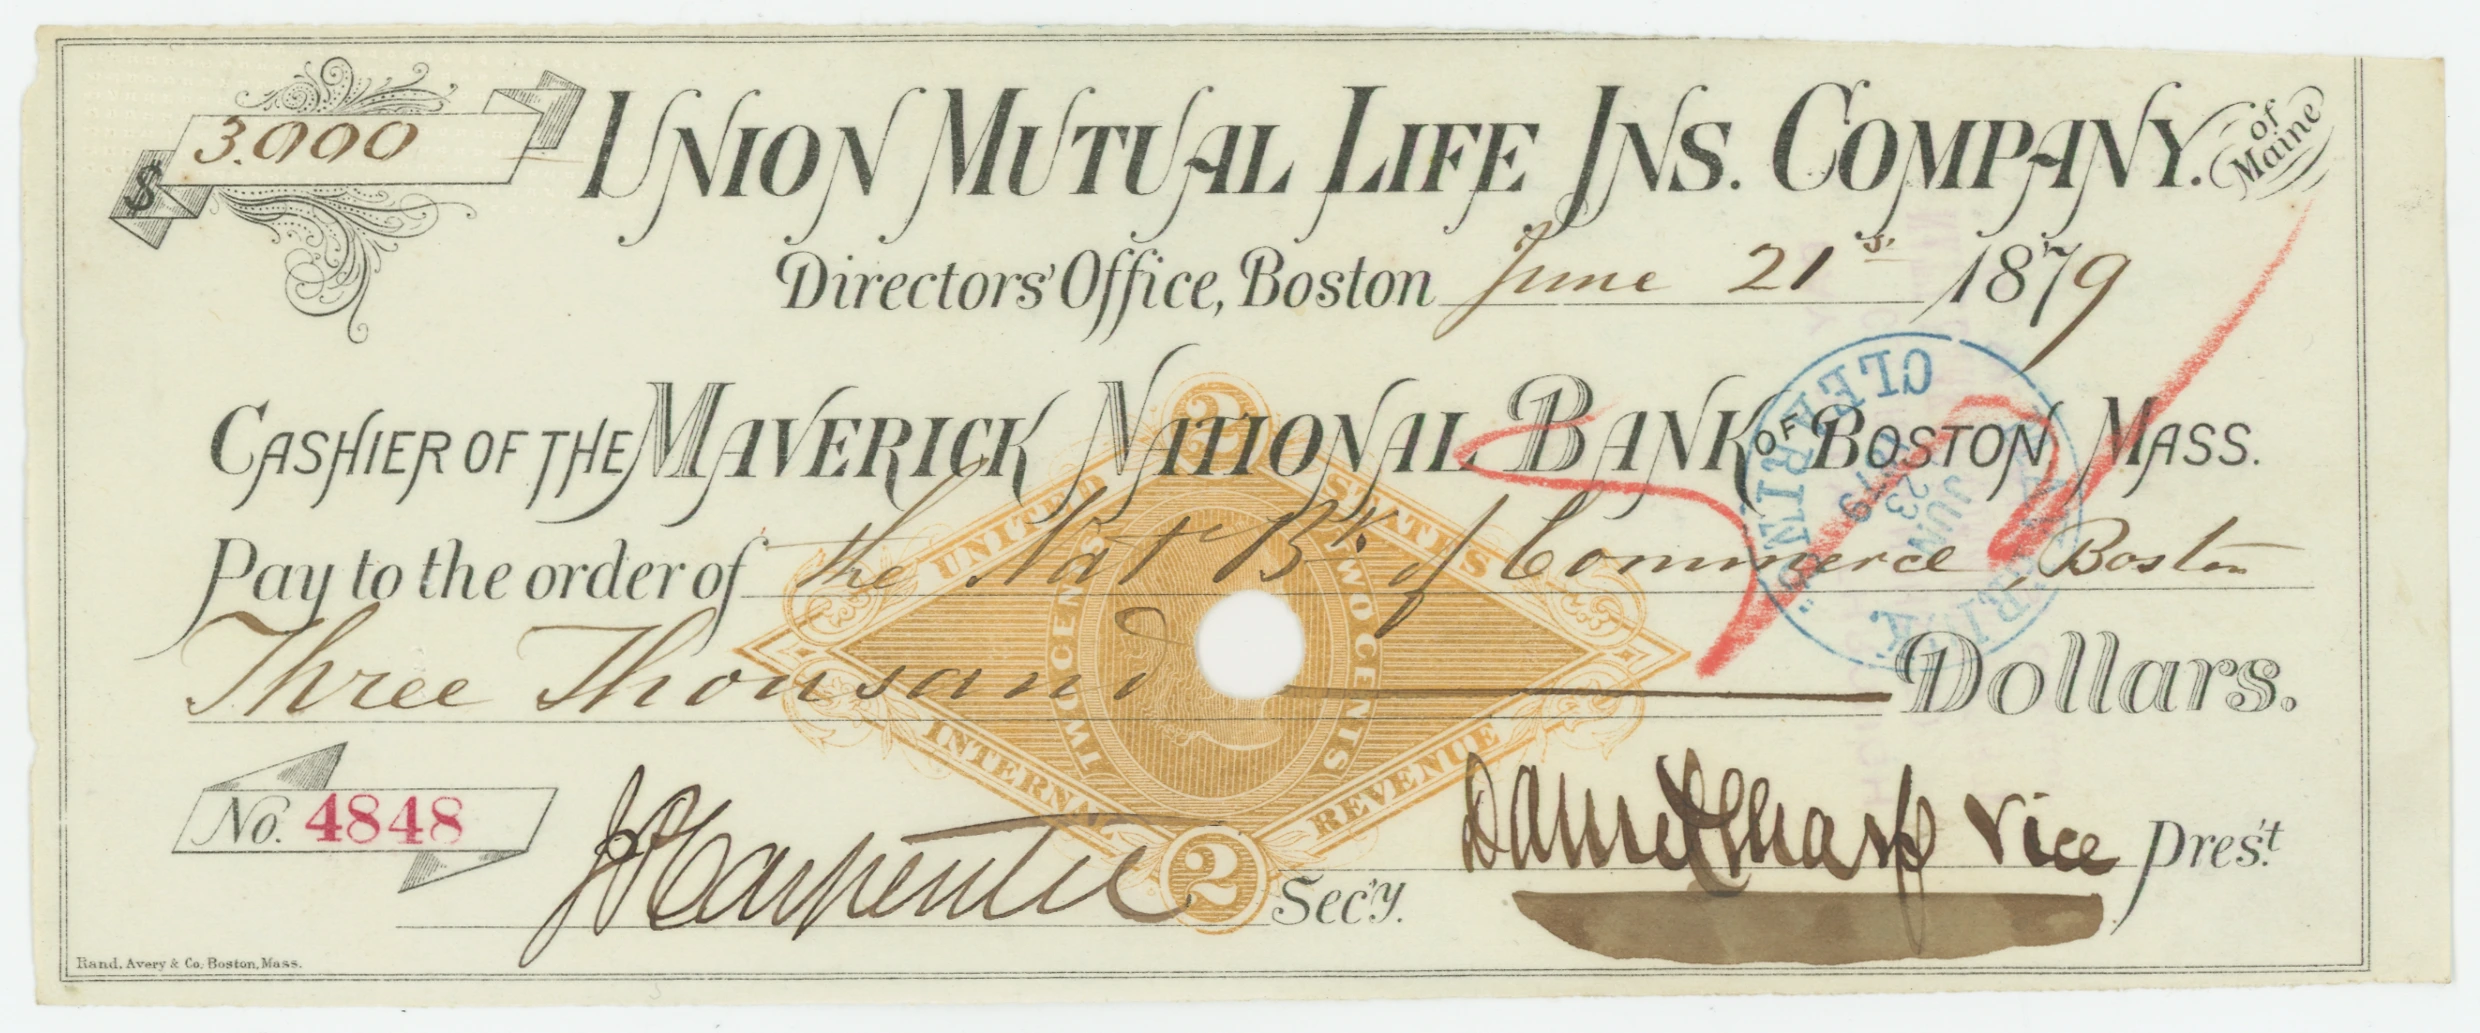 $ 3.000
UNION MUTUAL LIFE INS. COMPANY. of Maine
Directors' Office, Boston June 21st 1879
CASHIER OF THE MAVERICK NATIONAL BANK OF BOSTON, MASS.
Pay to the order of the Nat Bk. of Commerce, Boston
Three Thousand Dollars.
UNITED STATES
INTERNAL REVENUE
TWO CENTS TWO CENTS
2
2
CLEARING
JUN
23
79
No. 4848
J P Carpenter Sec'y.
Daniel Sharp Vice Pres't
Rand, Avery & Co. Boston, Mass.